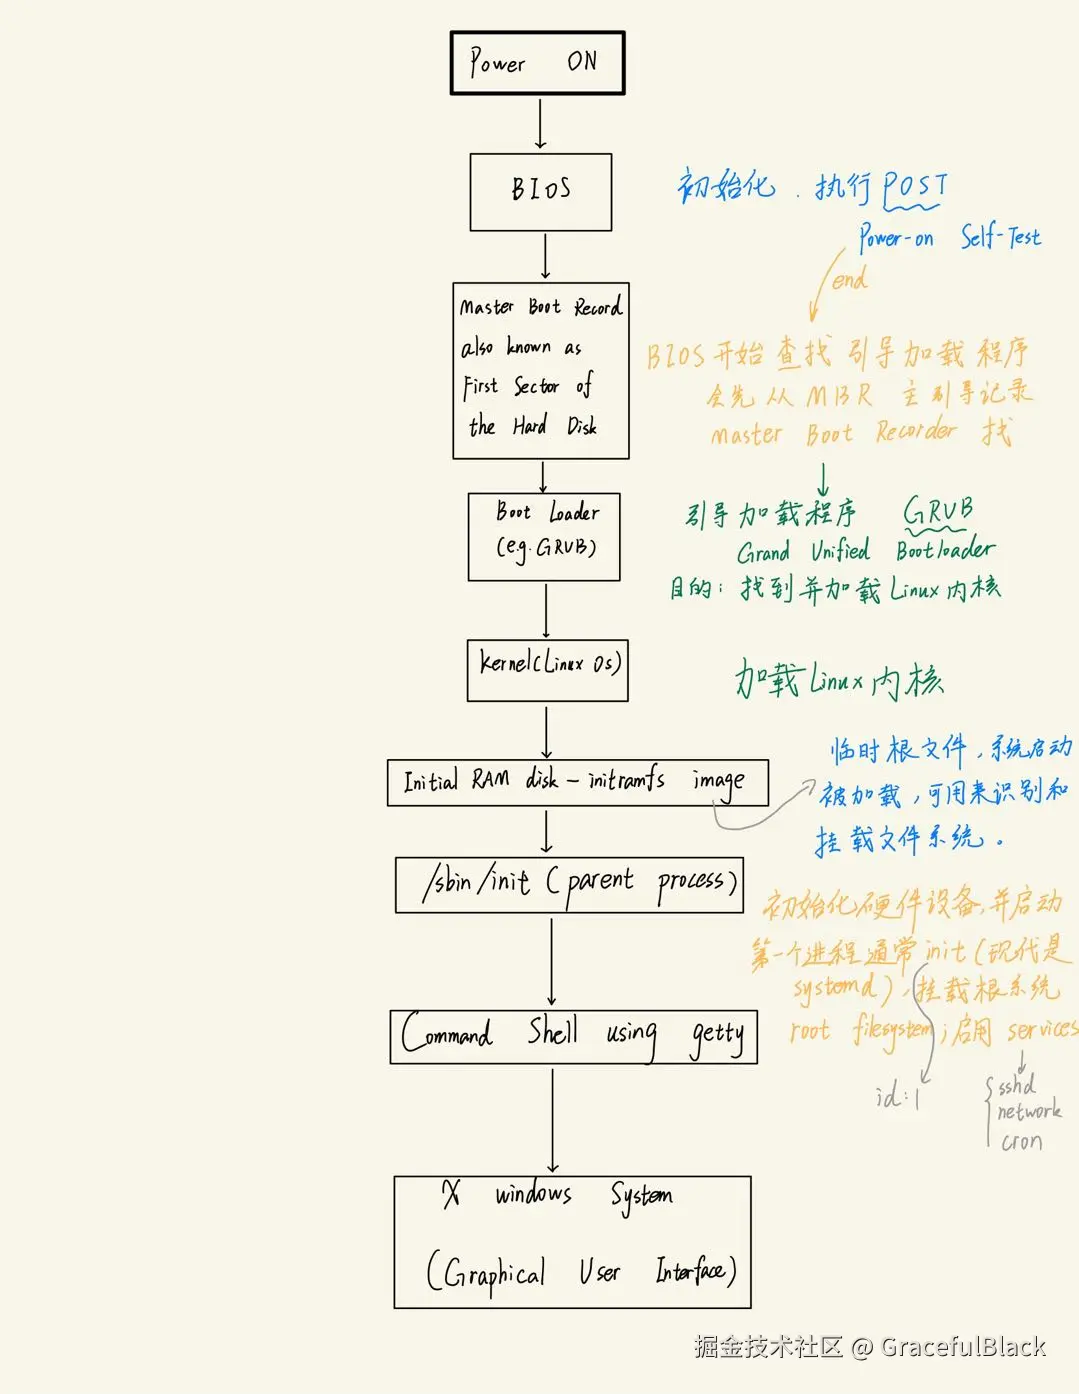 Power ON
BIOS
初始化．执行POST
Power-on Self-Test
end
Master Boot Record
also known as
First Sector of
the Hard Disk
BIOS开始查找引导加载程序
会先从MBR 主引导记录
Master Boot Recorder 找
Boot Loader
(e.g. GRUB)
引导加载程序 GRUB
Grand Unified Bootloader
目的：找到并加载Linux内核
kernel(Linux Os)
加载Linux内核
Initial RAM disk - initramfs image
临时根文件，系统启动
被加载，可用来识别和
挂载文件系统。
/sbin/init (parent process)
初始化硬件设备，并启动
第一个进程通常init(现代是
systemd)，挂载根系统
root filesystem；启用 services
id:1
sshd
network
cron
Command Shell using getty
X windows System
(Graphical User Interface)
掘金技术社区 @ GracefulBlack